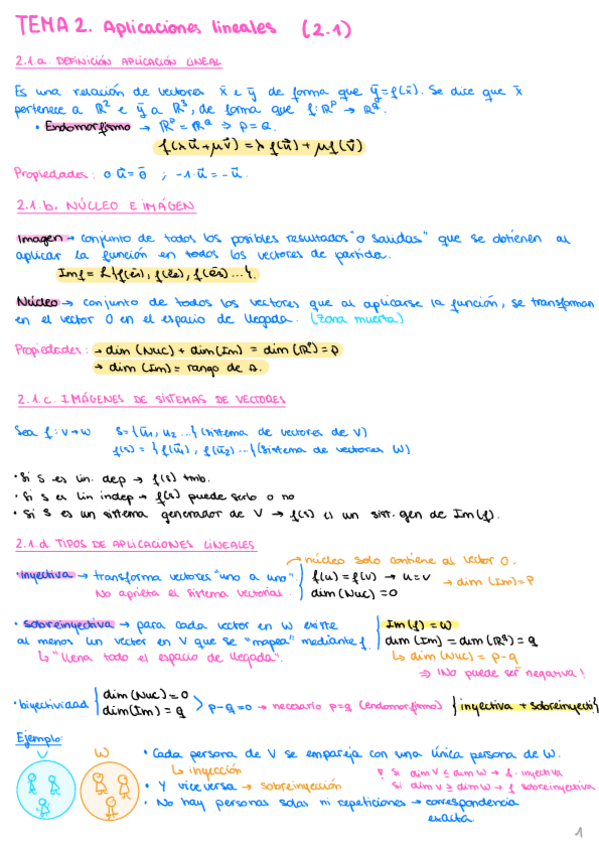 TEMA 2. Aplicaciones lineales (2.1)
2.1.a. DEFINICIÓN APLICACIÓN LINEAL
Es una relación de vectores x̄ e ȳ de forma que ȳ=f(x̄). Se dice que x̄
pertenece a ℝ² e ȳ a ℝ³, de forma que f: ℝᵖ → ℝᵍ.
• Endomorfismo → ℝᵖ = ℝᵍ ⇒ p = q.
f(λū + μv̄) = λ f(ū) + μ f(v̄)
Propiedades: 0·ū = 0̄ ; -1·ū = -ū.
2.1.b. NÚCLEO E IMÁGEN
Imagen → conjunto de todos los posibles resultados "o salidas" que se obtienen al
aplicar la función en todos los vectores de partida.
Imf = L{f(ē₁), f(ē₂), f(ē₃)...}.
Núcleo → conjunto de todos los vectores que al aplicarse la función, se transforman
en el vector 0 en el espacio de llegada. (zona muerta)
Propiedades: → dim (Nuc) + dim(Im) = dim (ℝᵖ) = p
→ dim (Im) = rango de A.
2.1.c. IMÁGENES DE SISTEMAS DE VECTORES
Sea f: v→w S={ū₁, u₂ ...} (sistema de vectores de V)
f(s) = {f(ū₁), f(ū₂)...} (sistema de vectores W)
• Si S es lin. dep → f(s) tmb.
• Si S es lin indep → f(s) puede serlo o no
• Si S es un sistema generador de V → f(s) es un sist. gen de Im(f).
2.1.d TIPOS DE APLICACIONES LINEALES
→ núcleo solo contiene al vector 0.
• inyectiva → transforma vectores "uno a uno". { f(u) = f(v) → u=v → dim (Im)=P
No aprieta el sistema vectorial. dim (Nuc) = 0
• sobreinyectiva → para cada vector en W existe { Im(f) = W
al menos un vector en V que se "mapea" mediante f. dim (Im) = dim (ℝᵍ) = q
↳ "llena todo el espacio de llegada". ↳ dim (Nuc) = p-q
⇒ ¡No puede ser negativa!
• biyectividad { dim (Nuc) = 0
dim (Im) = q > p-q = 0 → necesario p=q (endomorfismo) {inyectiva + sobreinyecti}
Ejemplo:
V W • Cada persona de V se empareja con una única persona de W.
↳ inyección Si dim V ≤ dim W → f. inyectiva
• Y viceversa → sobreinyección Si dim V ≥ dim W → f sobreinyectiva
• No hay personas solas ni repeticiones → correspondencia
exacta.
1